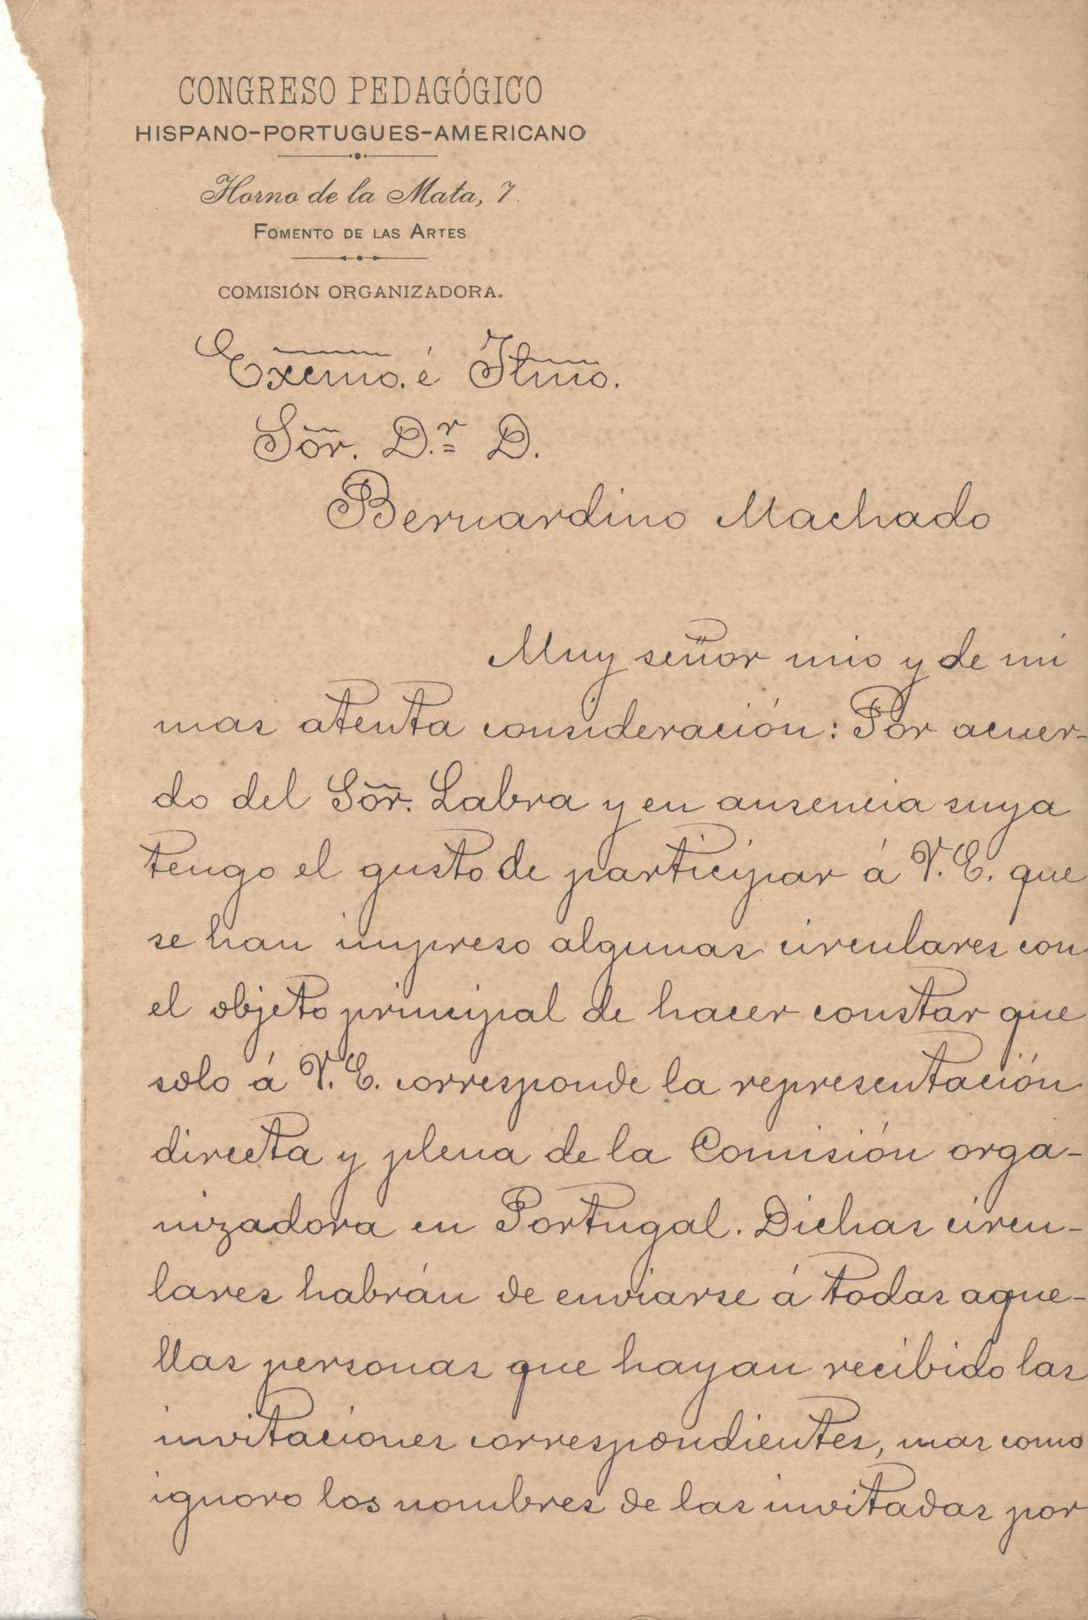 CONGRESO PEDAGÓGICO
HISPANO-PORTUGUES-AMERICANO
Horno de la Mata, 7.
FOMENTO DE LAS ARTES
COMISIÓN ORGANIZADORA.
Excmo. é Iltmo.
Sor. D.r D.
Bernardino Machado
Muy señor mio y de mi
mas atenta consideración: Por acuer-
do del Sor. Labra y en ausencia suya
tengo el gusto de participar á V. E. que
se han impreso algunas circulares con
el objeto principal de hacer constar que
solo á V. E. corresponde la representación
directa y plena de la Comisión orga-
nizadora en Portugal. Dichas circu-
lares habrán de enviarse á todas aque-
llas personas que hayan recibido las
invitaciones correspondientes, mas como
ignoro los nombres de las invitadas por